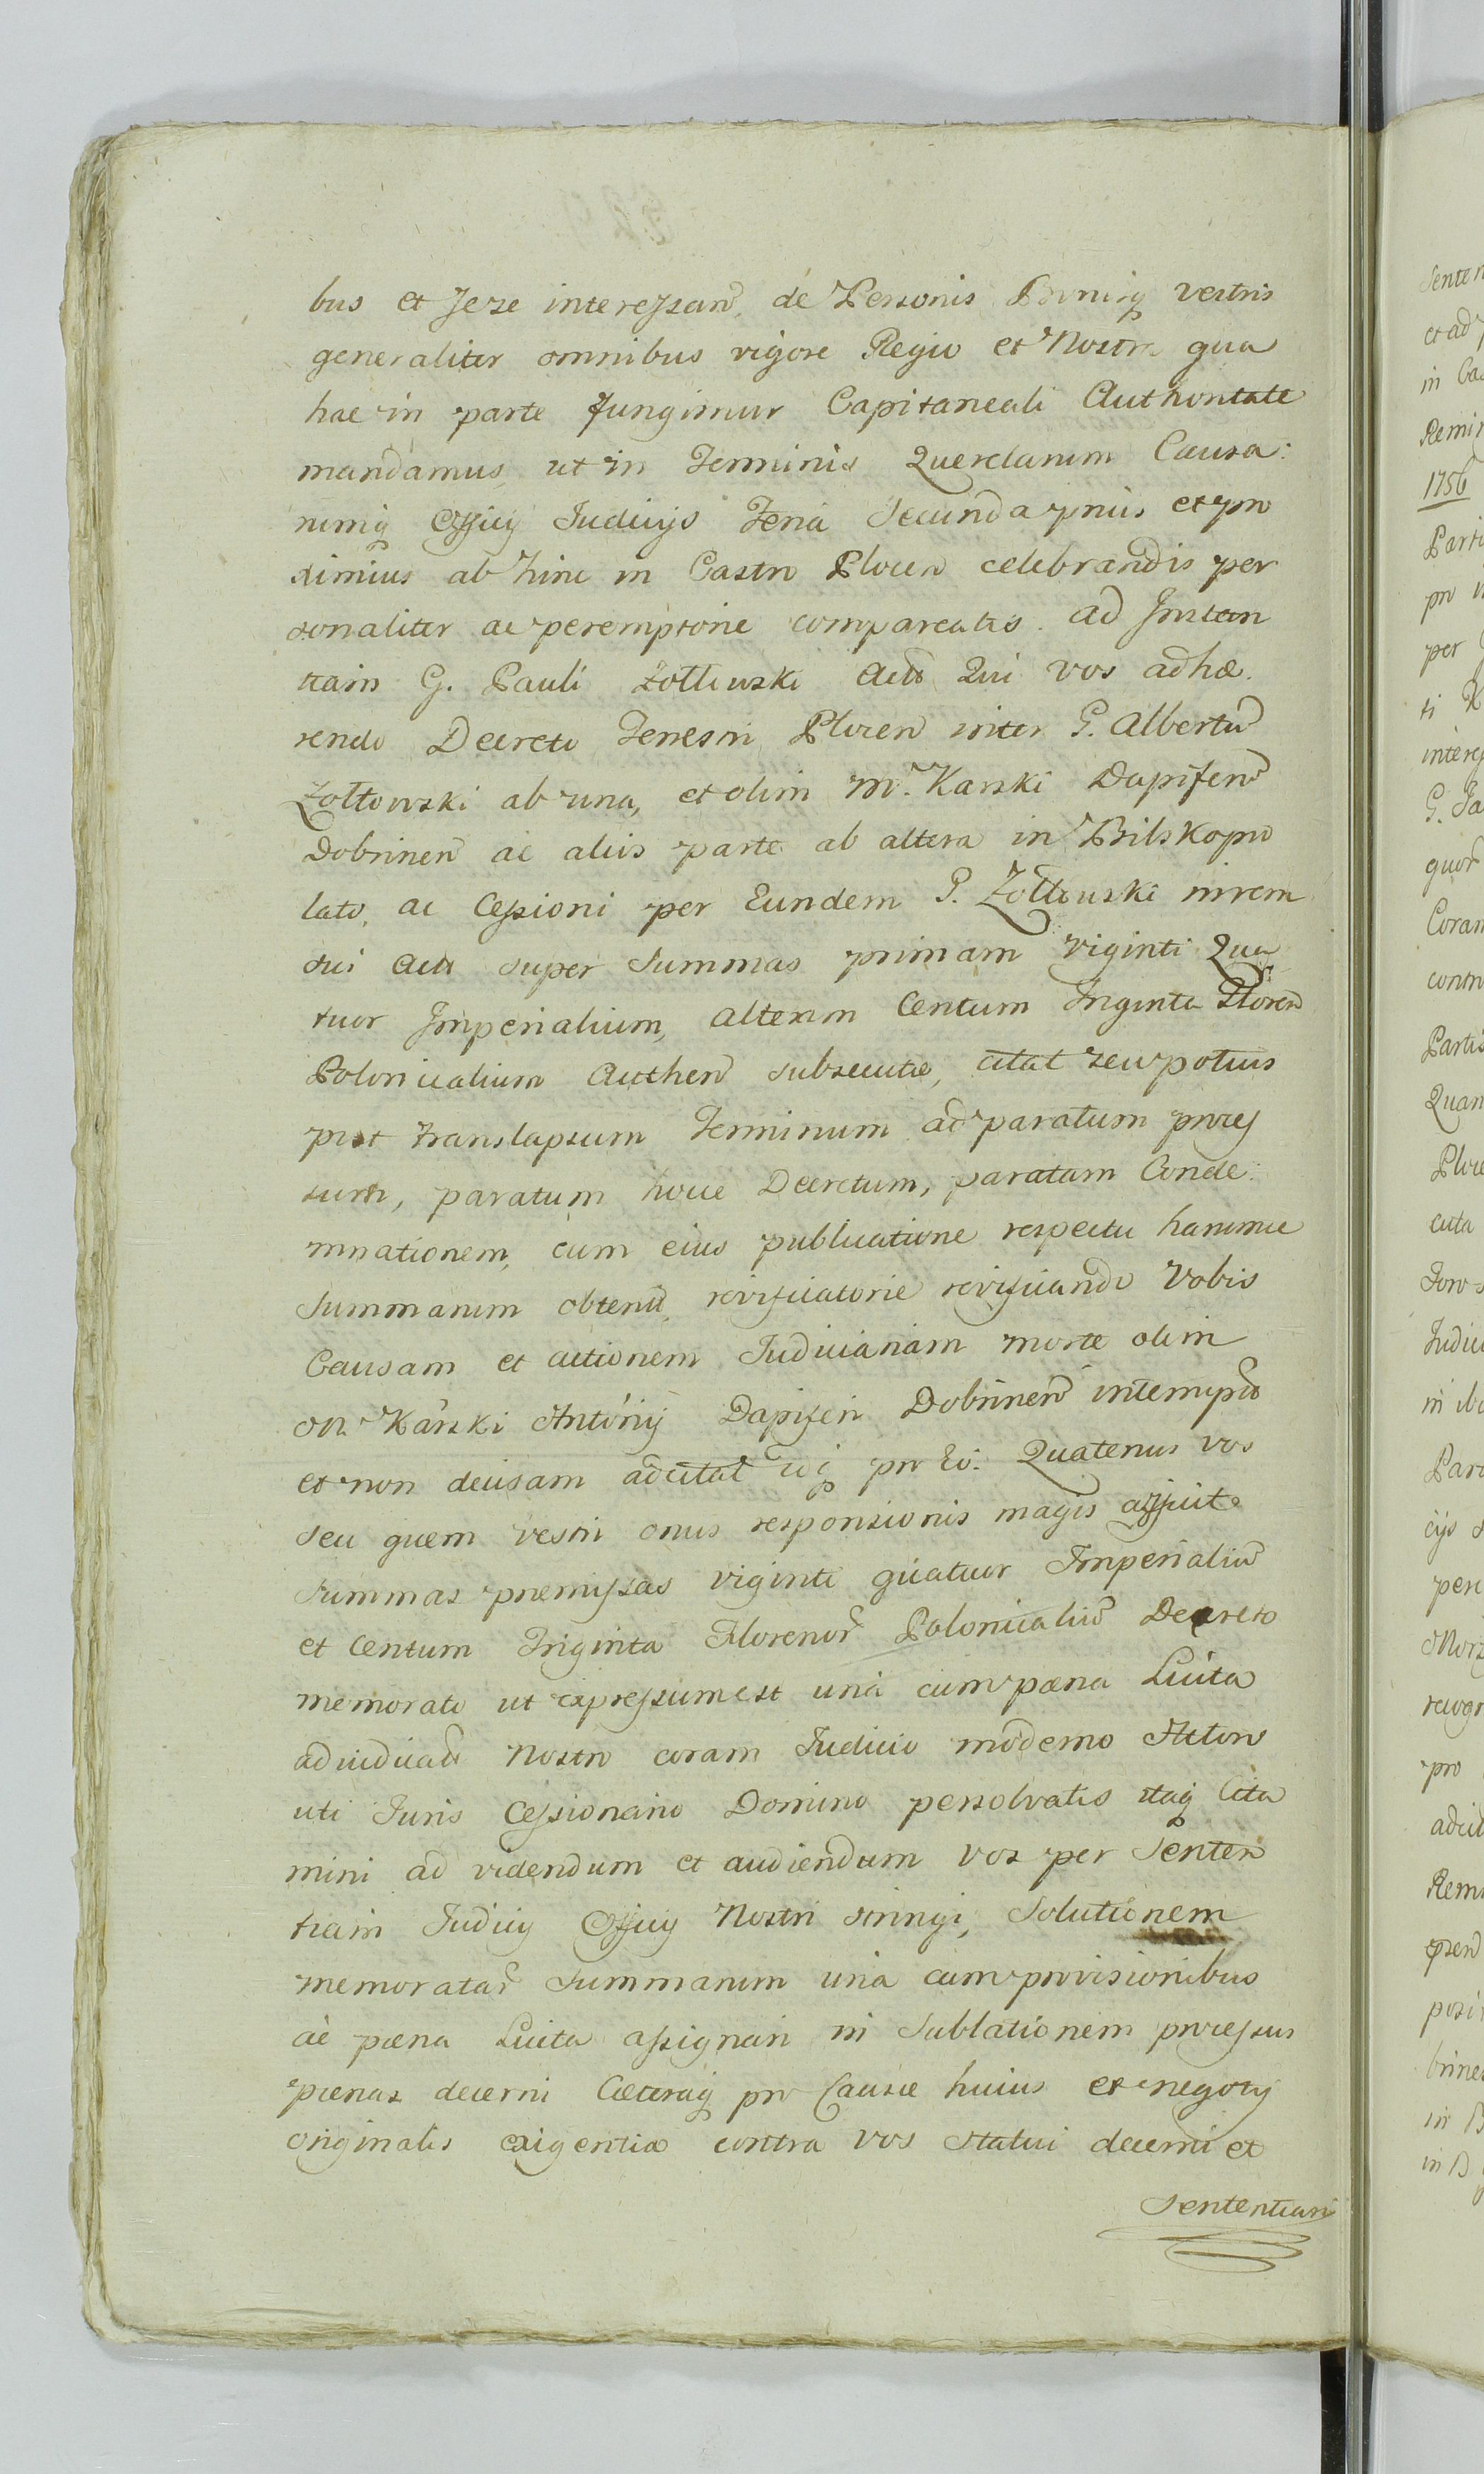 bus et sese interessan̄, de Personis Bonisq̨ vestris
generaliter omnibus vigore Regio et Nostra qua
hac in parte fungimur Capitaneali Authoritate
mandamus, ut in Terminis Querelarum Causa:
rumq̨ Officij Judicijs Feria Secunda prius et pro
ximius ab hinc in Castro Plocen̄ celebrandis per
sonaliter ac peremptorie compareatis. ad Instan
tiam G. Pauli Żołtowski Acto Qui vos adhæ.
rendo Decreto Terrestri Plocen̄ inter G. Albertū
Żołtowski ab una, et olim M. Karski Dapiferū
Dobrinen̄ ac aliis parte ab altera in Bilsk opro
lato, ac Cessioni per Eundem G. Żołtowski in rem
sui Act super Summas primam viginti Qua
tuor Imperialium, alteram Centum Triginta Floren̄
Polonicalium Authen̄ subsecutæ, citat seu potius
post translapsum Terminum ad paratum proces
sum, paratum hocce Decretum, paratam Conde:
mnationem, cum eius publicatione respectu harumce
Summarum obtent̄, revificatorie revificando Vobis
Causam et actionem Judiciariam morte olim
M. Karski Antonij Dapiferi Dobrinen̄ interrupt̄
et non decisam adcitat̄ idq̨ pro Eo: Quatenus vos
seu quem vestri onus responsionis magis afficit
Summas præmissas viginti quatuor Imperialiū
et Centum Triginta Florenor̄ Polonicaliū Decreto
memorato ut expressum est una cum pæna Luita
adiudicat̄ Nostro coram Judicio moderno Actori
uti Juris Cessionario Domino persolvatis itaq̨ Cita
mini ad videndum et audiendum vos per Senten
tiam Judicij Officij Nostri stringi, Solutionem
memoratar̄ Summarum una cum provisionibus
ac pæna Luita assignari in Sublationem processus
pænas decerni Cæteraq̨ pro Causæ huius et negotij
originalis exigentia contra vos statui decerni et
Sententiari
Senten
et ad
in Ca
Remi
1756
Parti
pro
per
ti
interes
G. Ja
quor̄
Coram
contr
Partis
Quan
Ploce
cuta
Tows
Judici
in
Par
cijs
pen
Morz
recogn
pro
adcit
Remi
posi
brinen
in B
in B